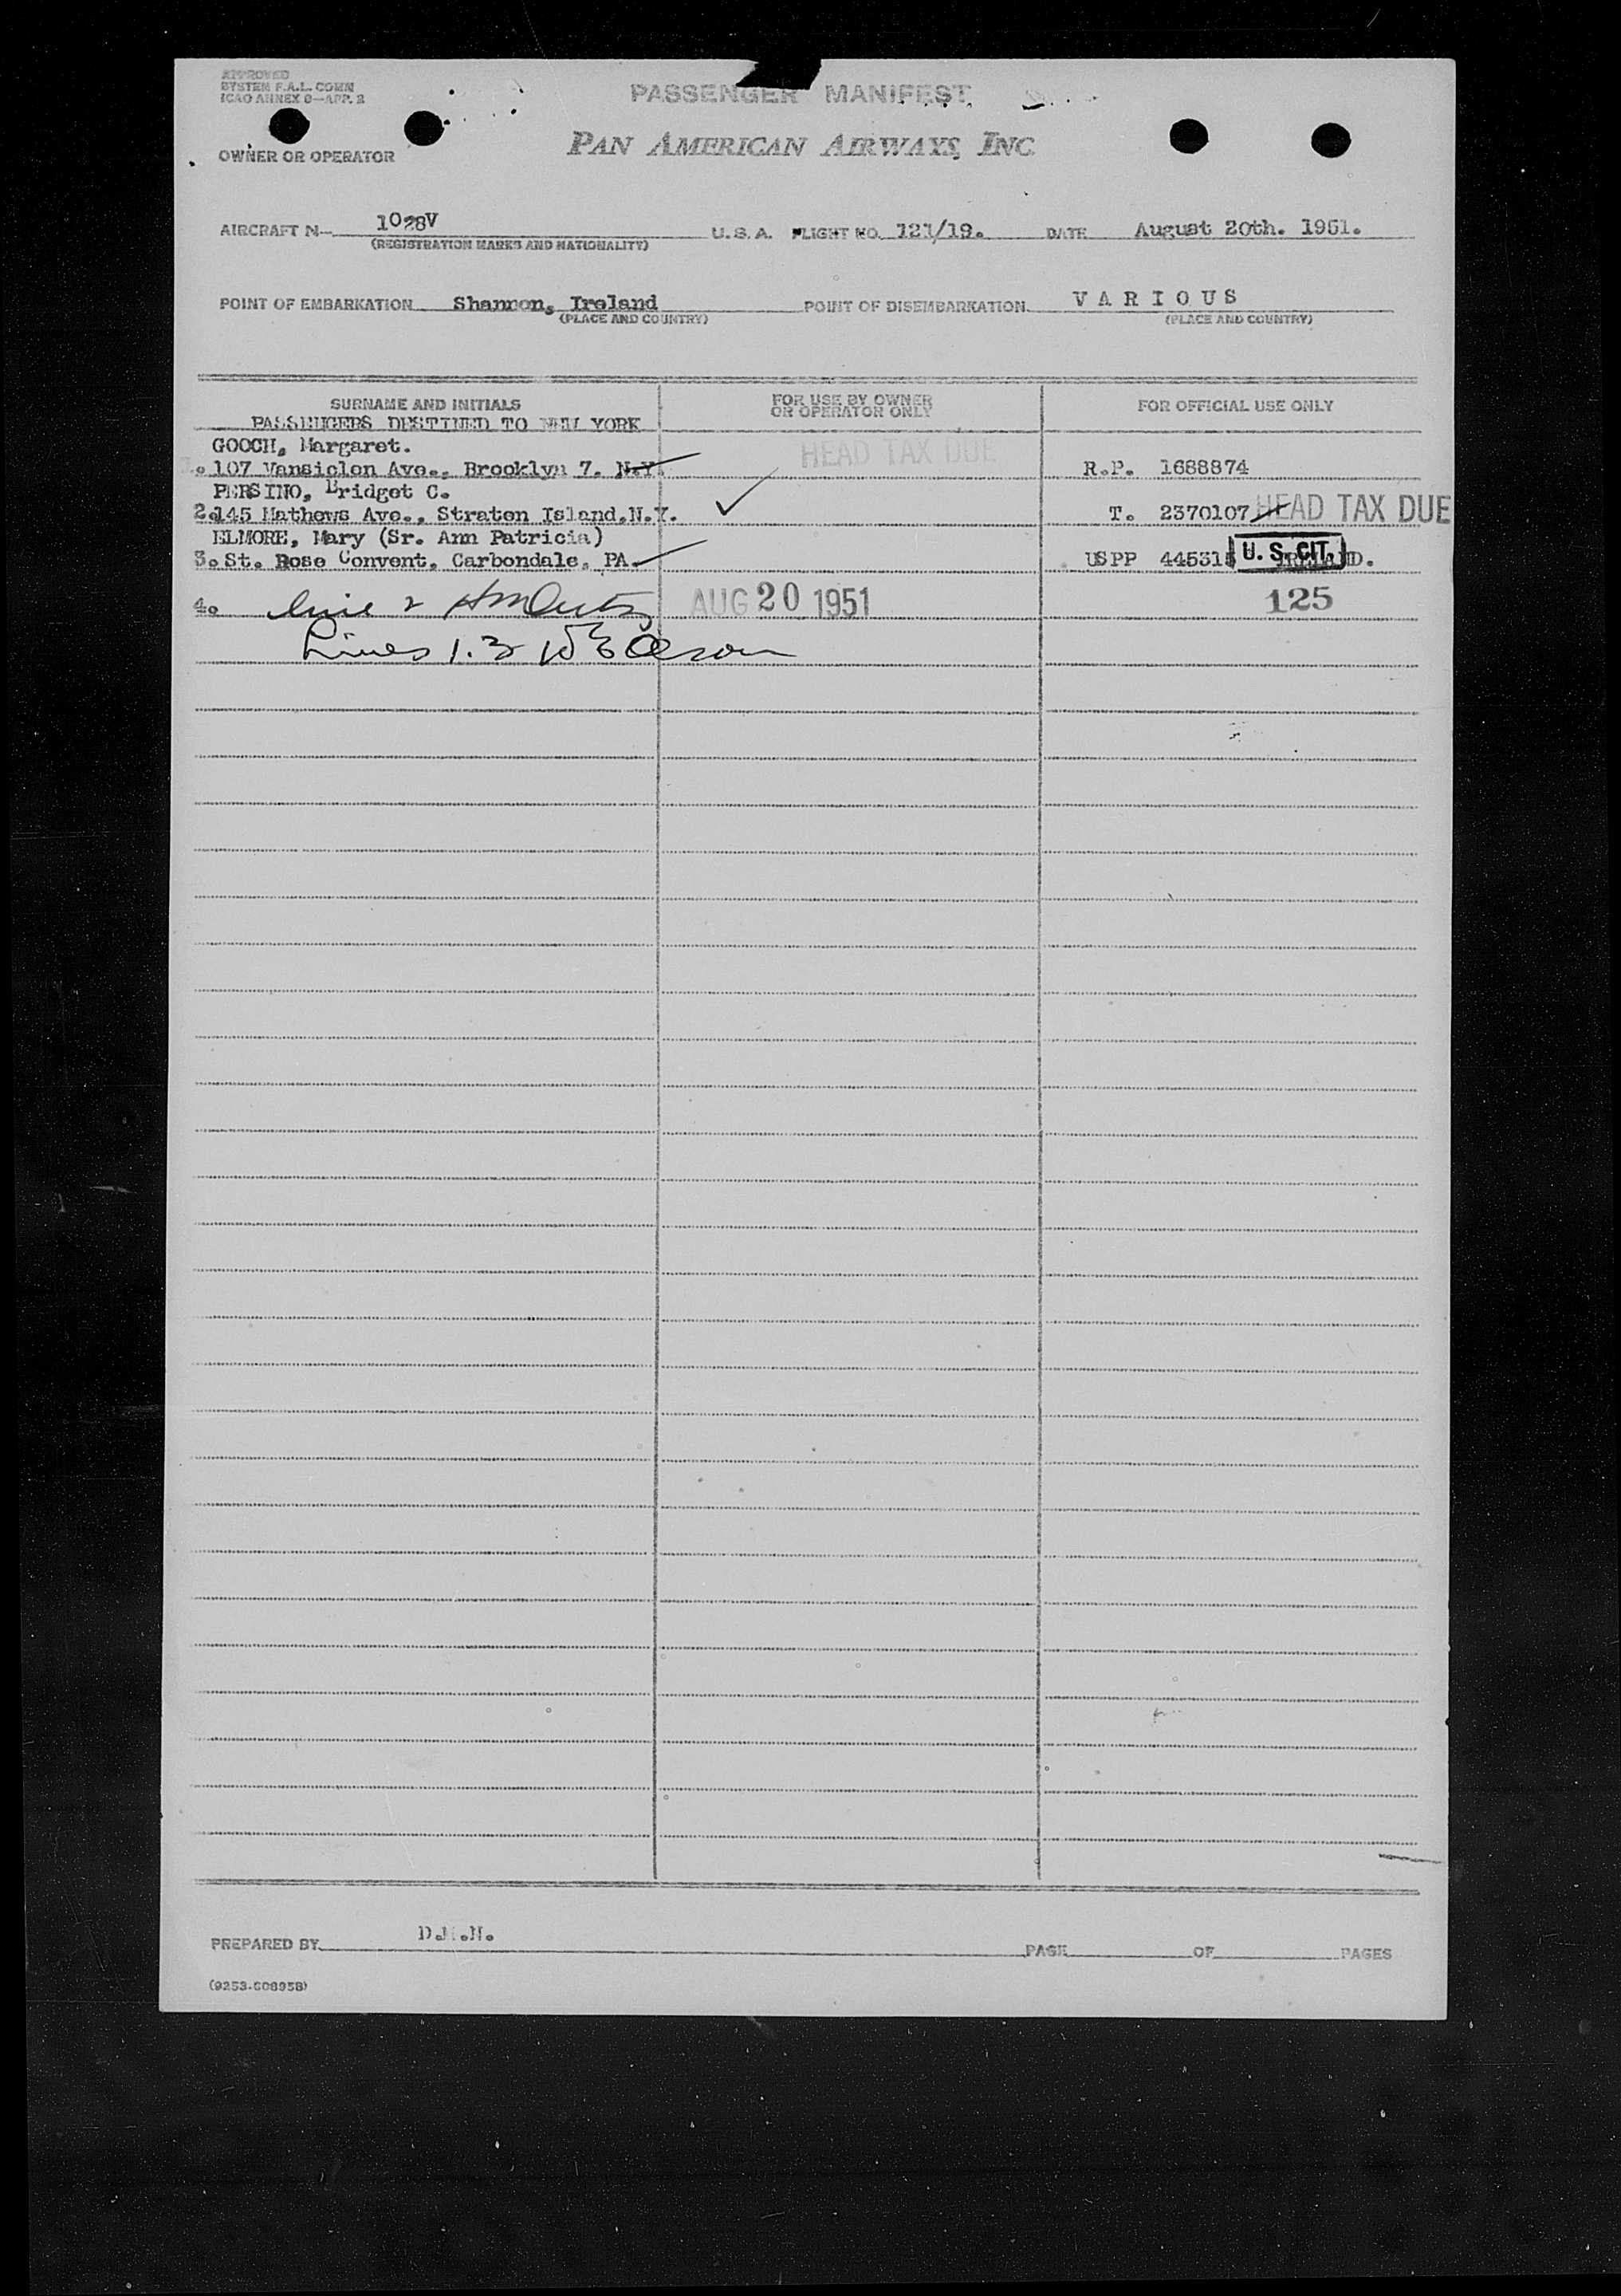 APPROVED
SYSTEM F.A.L. COMN
ICAO ANNEX 9—APP. 2
PASSENGER MANIFEST
OWNER OR OPERATOR
PAN AMERICAN AIRWAYS, INC.
AIRCRAFT N- 1028V U. S. A. FLIGHT NO. 121/19. DATE August 20th. 1951.
(REGISTRATION MARKS AND NATIONALITY)
POINT OF EMBARKATION Shannon, Ireland POINT OF DISEMBARKATION VARIOUS
(PLACE AND COUNTRY) (PLACE AND COUNTRY)
SURNAME AND INITIALS FOR USE BY OWNER OR OPERATOR ONLY FOR OFFICIAL USE ONLY
PASSENGERS DESTINED TO NEW YORK
GOOCH, Margaret. HEAD TAX DUE
107 Vansiclen Ave., Brooklyn 7. N.Y. R.P. 1688874
PERSINO, Bridget C.
2.145 Mathews Ave., Straten Island,N.Y. T. 2370107 HEAD TAX DUE
ELMORE, Mary (Sr. Ann Patricia)
3. St. Rose Convent, Carbondale, PA. USPP U. S. CIT.
4. Line 2 AUG 20 1951 125
Lines 1.3
PREPARED BY PAGE OF PAGES